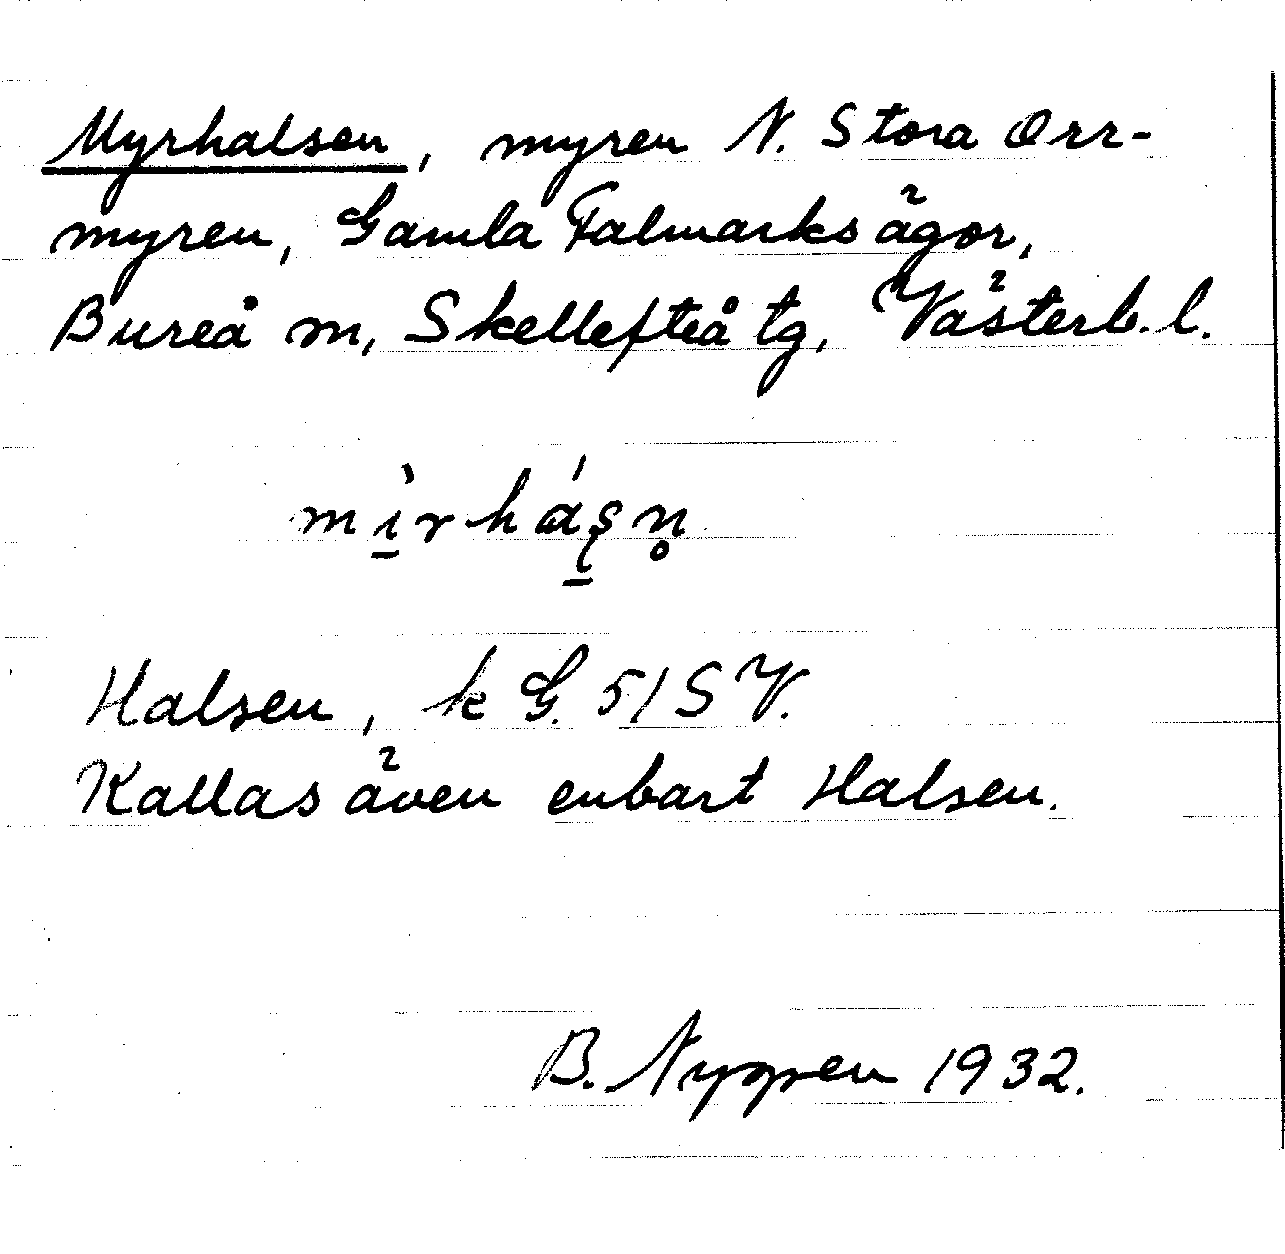 Myrhalsen, myren N. Stora Orr-
myren, Gamla Falmarks ägor,
Bureå m, Skellefteå tg, Västerb. l.
mı̱̀rhás̱n̥
Halsen, k G. 51 S V.
Kallas även enbart Halsen.
B. Nygren 1932.